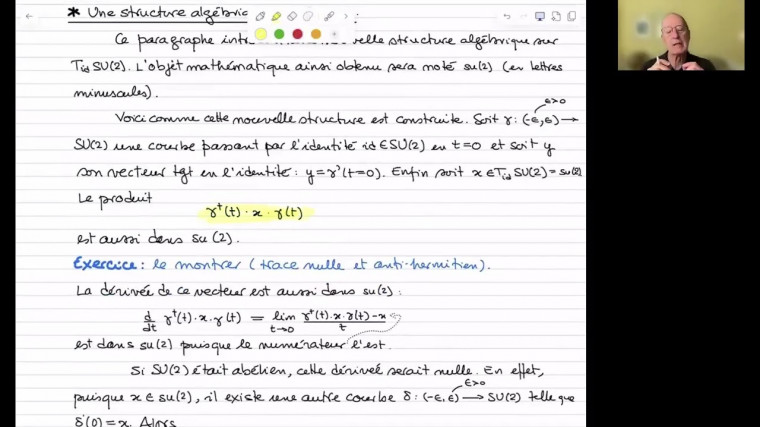 * Une structure algébri :
Ce paragraphe intr velle structure algébrique sur
T_id SU(2). L'objet mathématique ainsi obtenu sera noté su(2) (en lettres
minuscules).
Voici comme cette nouvelle structure est construite. Soit γ: (-ε,ε) → ε>0
SU(2) une courbe passant par l'identité id ∈ SU(2) en t=0 et soit y
son vecteur tgt en l'identité: y = γ'(t=0). Enfin soit x ∈ T_id SU(2) = su(2)
Le produit
γ†(t) · x · γ(t)
est aussi dans su(2).
Exercice: le montrer (trace nulle et anti-hermitien).
La dérivée de ce vecteur est aussi dans su(2):
d/dt γ†(t)·x·γ(t) = lim t→0 (γ†(t)·x·γ(t) - x)/t
est dans su(2) puisque le numérateur l'est.
Si SU(2) était abélien, cette dérivée serait nulle. En effet,
puisque x ∈ su(2), il existe une autre courbe δ: (-ε,ε) → SU(2) telle que ε>0
δ'(0) = x. Alors